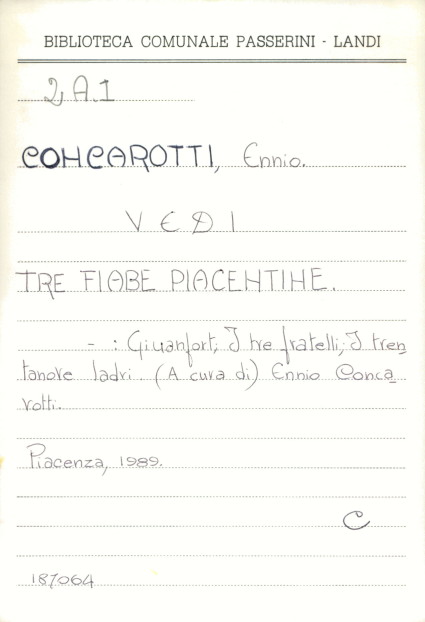 BIBLIOTECA COMUNALE PASSERINI - LANDI
2, A.1
CONCAROTTI, Ennio.
VEDI
TRE FIABE PIACENTINE.
- : Giuanfort; I tre fratelli; I tren
tanove ladri. (A cura di) Ennio Conca
rotti.
Piacenza, 1989.
C
187064